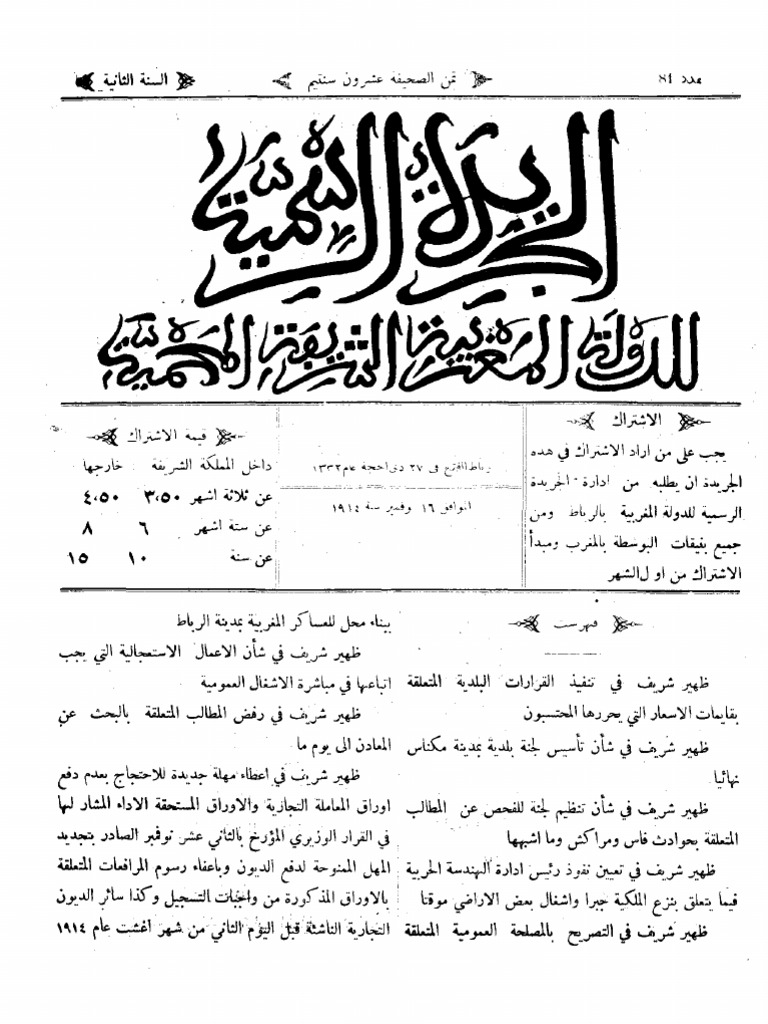 عدد 81
ثمن الصحيفة عشرون سنتيم
السنة الثانية
الجريدة الرسمية
للدولة المغربية الشريفة المحمية
الاشتراك
يجب على من اراد الاشتراك في هذه
الجريدة ان يطلبه من ادارة الجريدة
الرسمية للدولة المغربية بالرباط ومن
جميع بقيقات البوسطة بالمغرب ومبدأ
الاشتراك من اول الشهر
رباط الفتح في ٢٧ ذي الحجة عام ١٣٣٢
الموافق ١٦ نوفمبر سنة ١٩١٤
قيمة الاشتراك
داخل المملكة الشريفة خارجها
عن ثلاثة اشهر ٣،٥٠ ٤،٥٠
عن ستة اشهر ٦ ٨
عن سنة ١٠ ١٥
فهرست
ظهير شريف في تنفيذ القرارات البلدية المتعلقة
بقايمات الاسعار التي يحررها المحتسبون
ظهير شريف في شأن تأسيس لجنة بلدية بمدينة مكناس
نهائيا
ظهير شريف في شأن تنظيم لجنة للفحص عن المطالب
المتعلقة بحوادث فاس ومراكش وما اشبهها
ظهير شريف في تعيين نفوذ رئيس ادارة الهندسة الحربية
فيما يتعلق بنزع الملكية جبرا واشغال بعض الاراضي موقتا
ظهير شريف في التصريح بالمصلحة العمومية المتعلقة
ببناء محل للعساكر المغربية بمدينة الرباط
ظهير شريف في شأن الاعمال الاستعجالية التي يجب
اتباعها في مباشرة الاشغال العمومية
ظهير شريف في رفض المطالب المتعلقة بالبحث عن
المعادن الى يوم ما
ظهير شريف في اعطاء مهلة جديدة للاحتجاج بعدم دفع
اوراق المعاملة التجارية والاوراق المستحقة الاداء المشار لها
في القرار الوزيري المؤرخ بالثاني عشر نوفمبر الصادر بتجديد
المهل الممنوحة لدفع الديون وباعفاء رسوم المرافعات المتعلقة
بالاوراق المذكورة من واجبات التسجيل وكذا سائر الديون
التجارية الناشئة قبل اليوم الثاني من شهر اغشت عام ١٩١٤